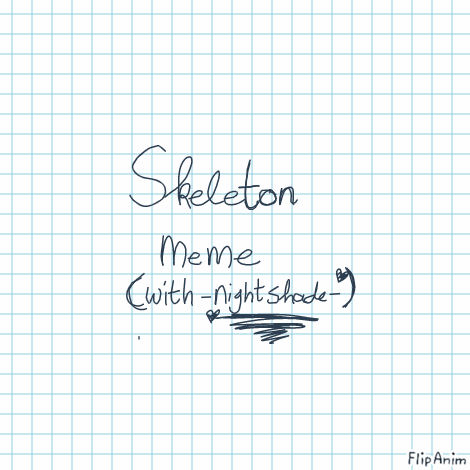 Skeleton
meme
(with -nightshade-)
FlipAnim